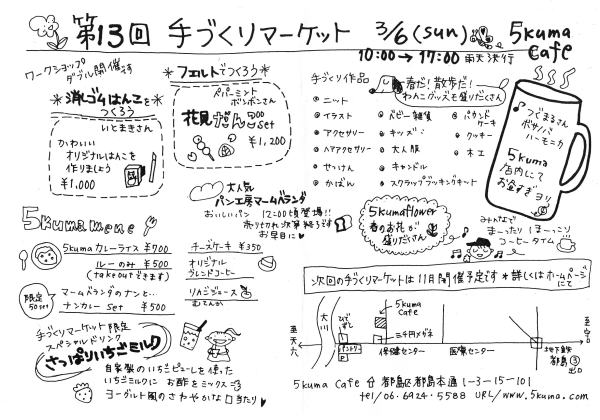 第13回 手づくりマーケット 3/6(sun) 5kuma Cafe
10:00→17:00 雨天決行
ワークショップ
ダブル開催です
*消しゴムはんこを
つくろう
いとまきさん
かわいい
オリジナルはんこを
作りましょう
¥1,000
*フェルトでつくろう*
ペパーミント
ボンボンさん
花見だんご
set
¥1,200
手づくり作品
春だ!散歩だ!
わんこグッズも盛りだくさん
ニット
イラスト
アクセサリー
ヘアアクセサリー
せっけん
かばん
ベビー雑貨
キッズ
大人服
キャンドル
スクラップブッキングキット
パウンドケーキ
クッキー
木工
つでまるさん
ボサノバ
ハーモニカ
5kuma
店内にて
お金すぎヨリ
大人気
パン工房マームベランダ
おいしいパン 12:00頃登場!!
売り切れ次第終了です
お早目に
5kumaflower
春のお花が
盛りだくさん
みんなで
まったり ほっこり
コーヒータイム
5kuma menu
5kumaカレーライス ¥700
ルーのみ ¥500
(takeoutできます)
限定
50set
マームベランダのナンと…
ナンカレーset ¥500
チーズケーキ ¥350
オリジナル
ブレンドコーヒー
りんごジュース
むてんか
手づくりマーケット限定
スペシャルドリンク
さっぱりいちごミルク
自家製のいちごピューレを使った
いちごミルクに お酢をミックス
ヨーグルト風のさわやかな口当たり
次回の手づくりマーケットは11月開催予定です *詳しくはホームページにて
至天六
大川
ひでずし
パントリー
P
5kuma
Cafe
三千円メガネ
保健センター
医療センター
至
地下鉄
都島③
出口
5kuma Cafe 都島区都島本通1-3-15-101
tel/06.6924.5588 URL/www.5kuma.com